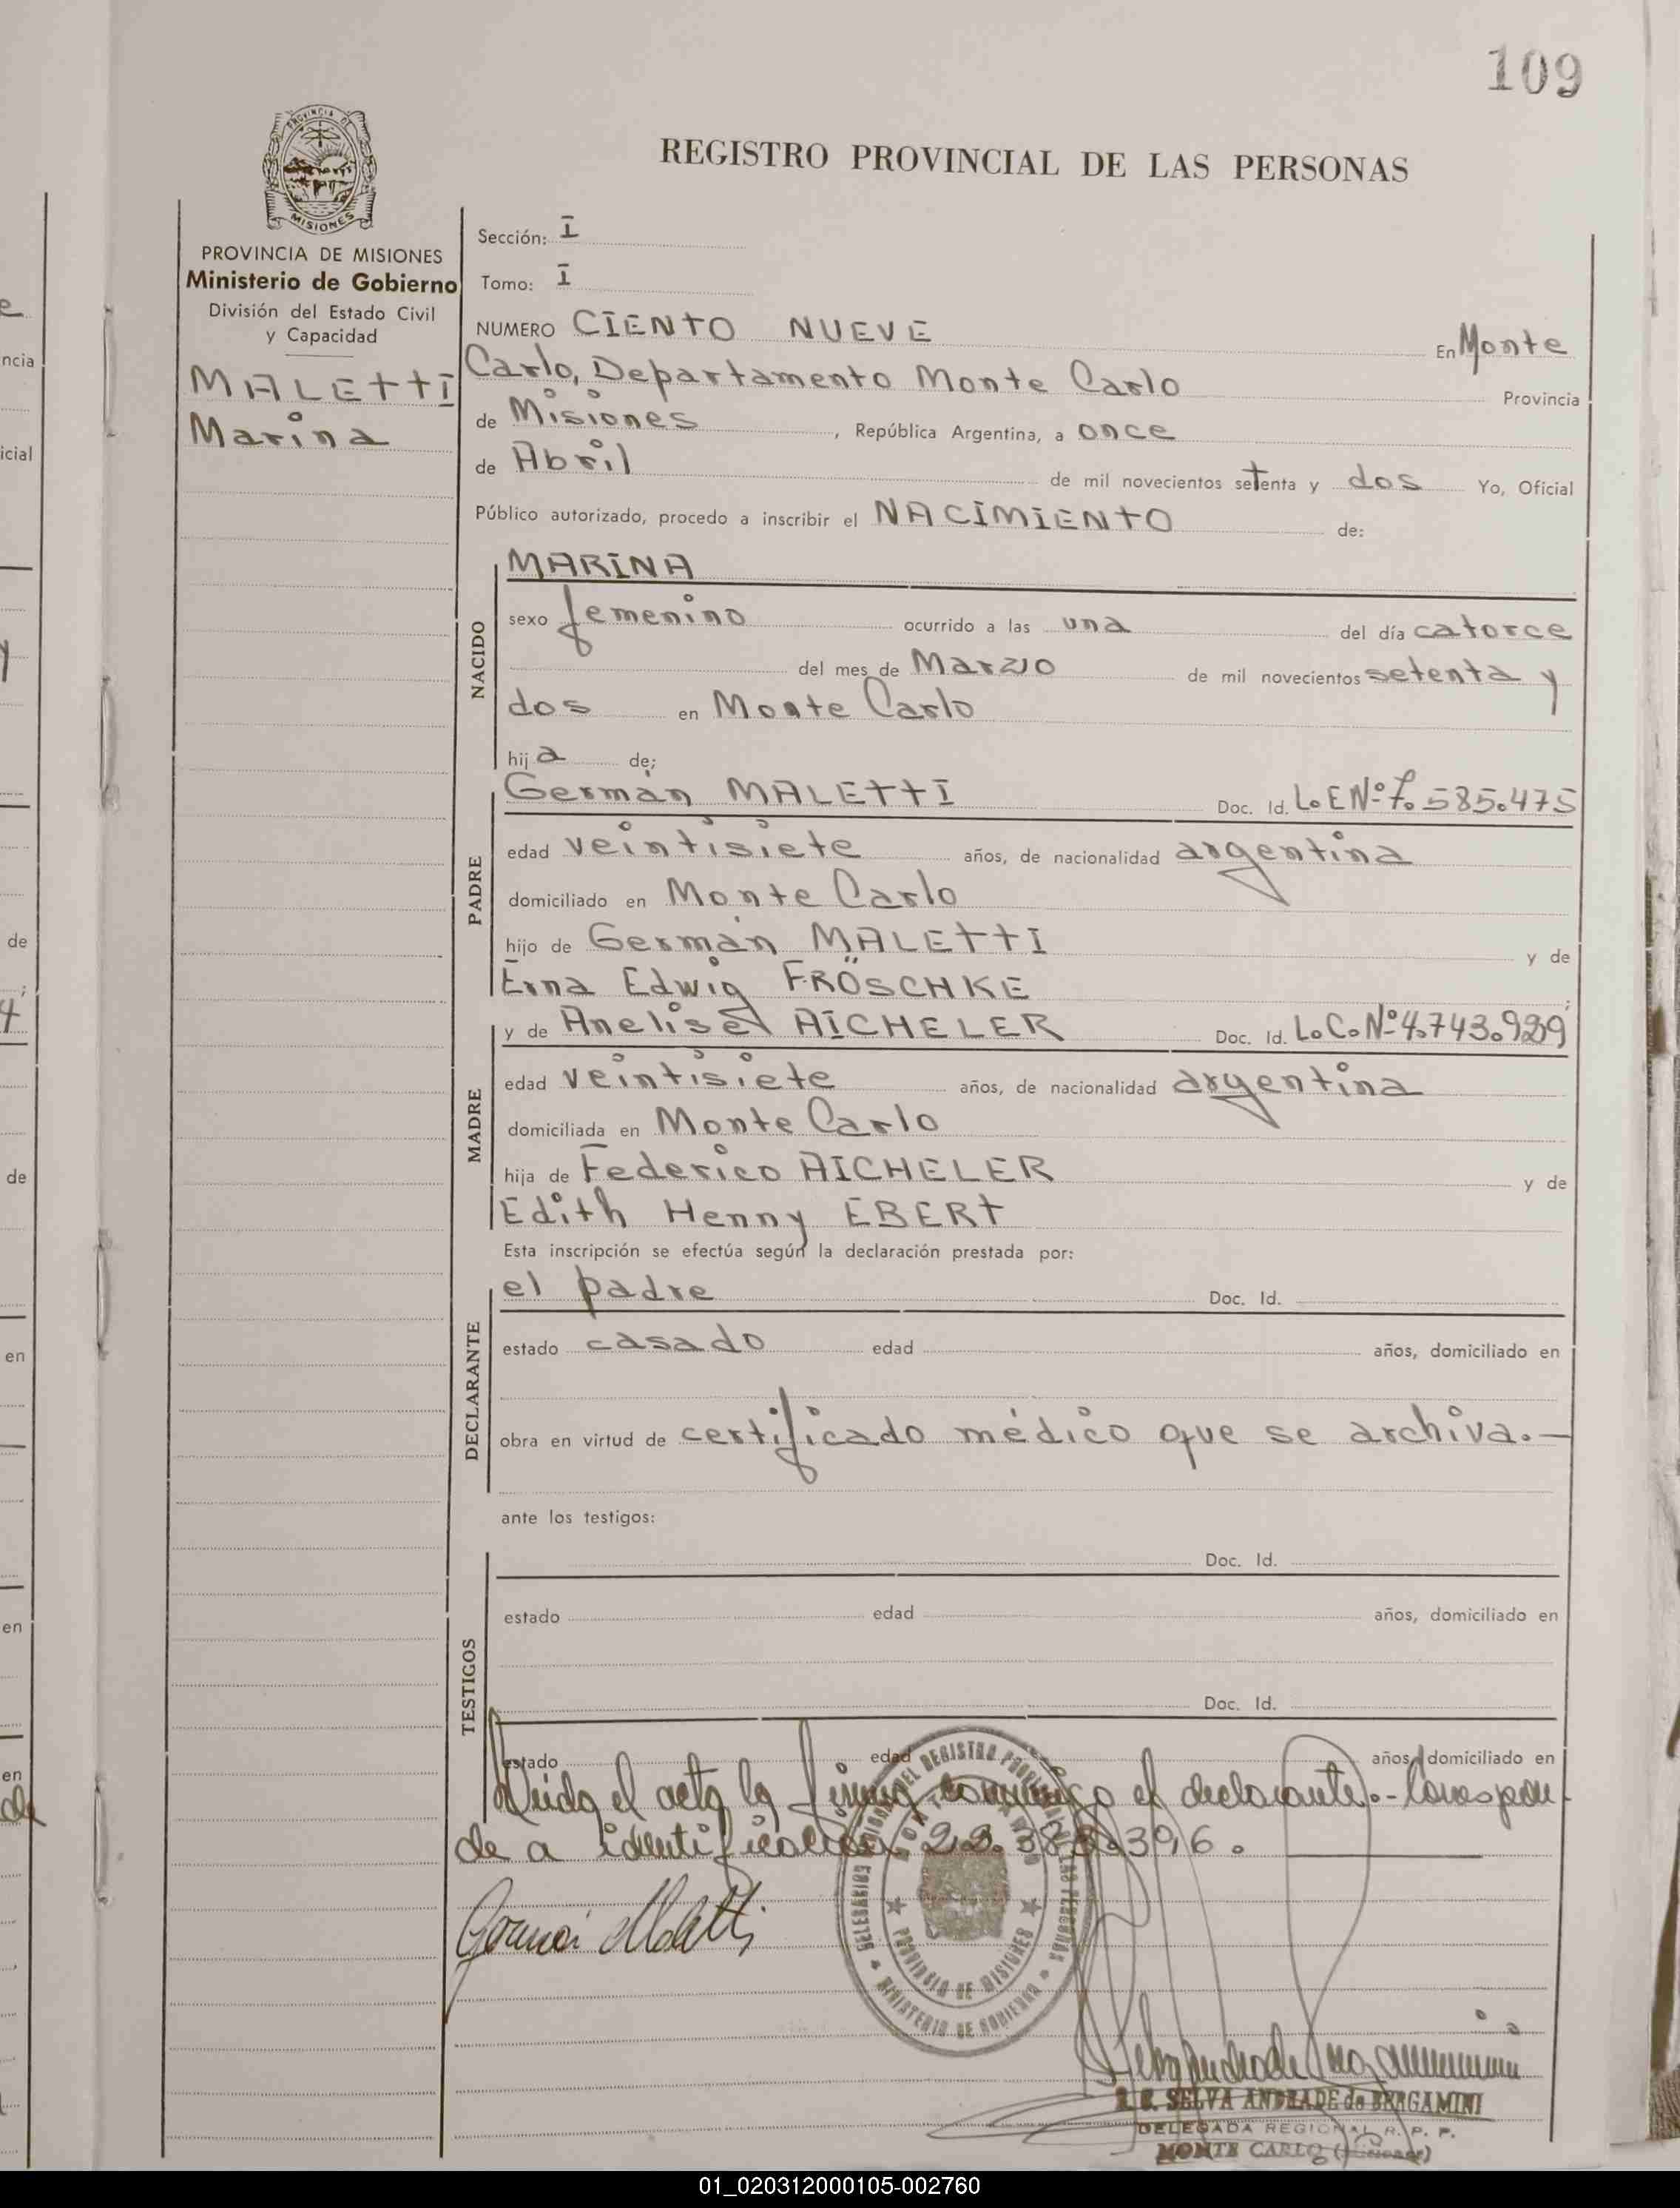 109
PROVINCIA DE
MISIONES
REGISTRO PROVINCIAL DE LAS PERSONAS
PROVINCIA DE MISIONES
Ministerio de Gobierno
División del Estado Civil
y Capacidad
MALETTI
Marina
Sección: I
Tomo: I
NUMERO CIENTO NUEVE En Monte
Carlo, Departamento Monte Carlo Provincia
de Misiones, República Argentina, a once
de Abril de mil novecientos setenta y dos Yo, Oficial
Público autorizado, procedo a inscribir el NACIMIENTO de:
NACIDO
MARINA
sexo femenino ocurrido a las una del día catorce
del mes de Marzo de mil novecientos setenta y
dos en Monte Carlo
hija de;
PADRE
Germán MALETTI Doc. Id. L.E Nº 7.585.475
edad veintisiete años, de nacionalidad argentina
domiciliado en Monte Carlo
hijo de Germán MALETTI y de
Erna Edwig FRÖSCHKE ;
MADRE
y de Anelise AICHELER Doc. Id. L.C. Nº 4.743.929
edad veintisiete años, de nacionalidad argentina
domiciliada en Monte Carlo
hija de Federico AICHELER y de
Edith Henny EBERT
Esta inscripción se efectúa según la declaración prestada por:
DECLARANTE
el padre Doc. Id.
estado casado edad años, domiciliado en
obra en virtud de certificado médico que se archiva.—
ante los testigos:
TESTIGOS
Doc. Id.
estado edad años, domiciliado en
Doc. Id.
estado edad años, domiciliado en
Leida el acta la firma conmigo el declarante.- Correspon
de a identificación 22.383.396.
DELEGACION REGIONAL DEL REGISTRO PROVINCIAL DE LAS PERSONAS
MONTE CARLO
PROVINCIA DE MISIONES
MINISTERIO DE GOBIERNO
Germán Maletti
SELVA ANDRADE de BERGAMINI
DELEGADA REGIONAL R. P. P.
MONTE CARLO (Misiones)
01_020312000105-002760